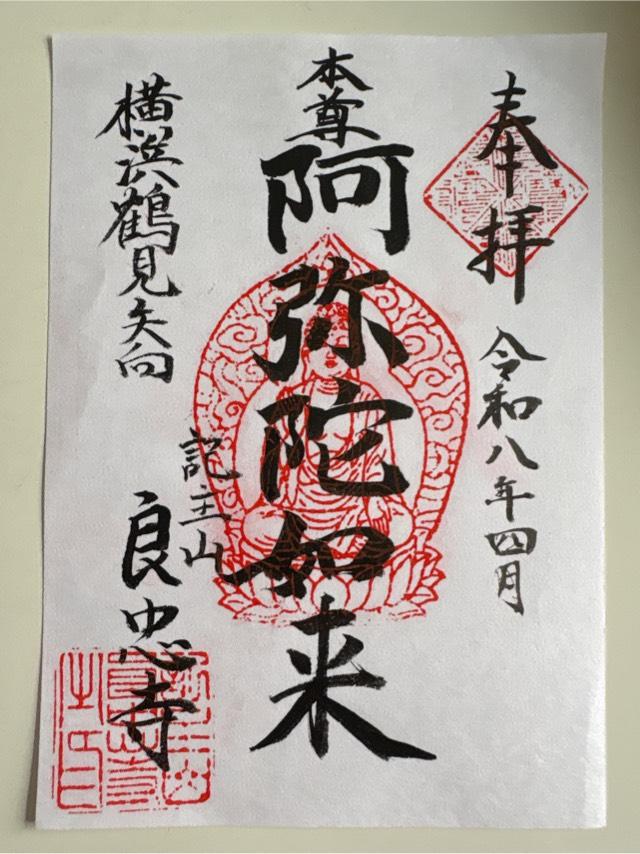 奉拝
令和八年四月
本尊
阿弥陀如来
記主山
横浜鶴見矢向
良忠寺